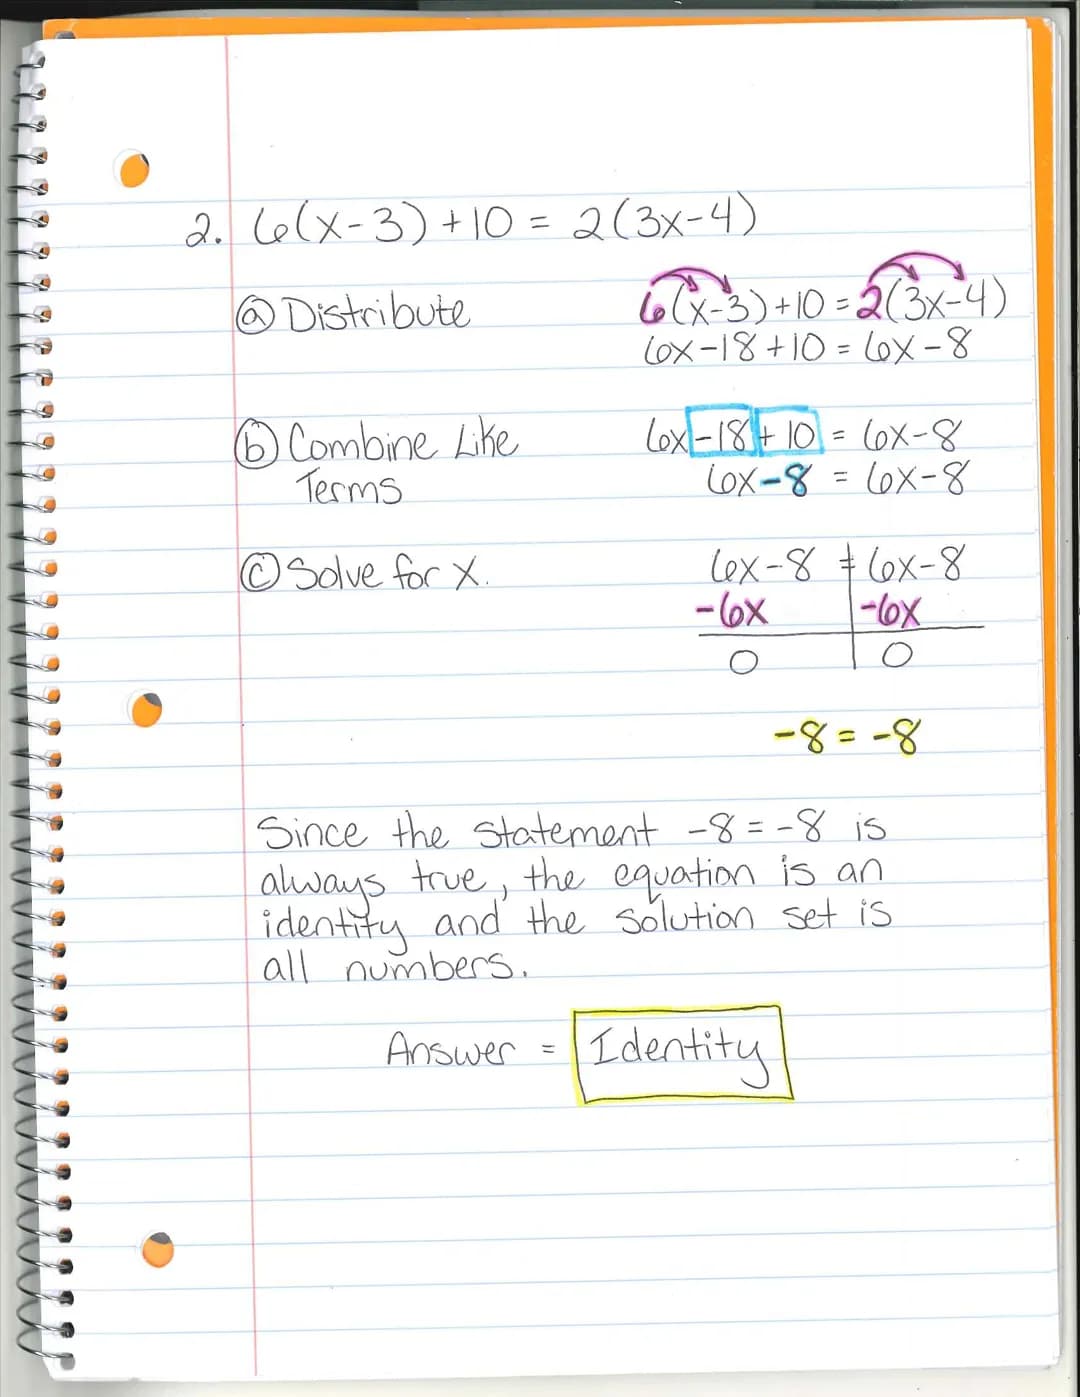 2. 6(x-3)+10 = 2(3x-4)
ⓐ Distribute
6(x-3)+10 = 2(3x-4)
6x-18+10 = 6x-8
ⓑ Combine Like
Terms
6x-18+10 = 6x-8
6x-8 = 6x-8
ⓒ Solve for x.
6x-8 = 6x-8
-6x -6x
0 0
-8 = -8
Since the statement -8 = -8 is
always true, the equation is an
identity and the solution set is
all numbers.
Answer = Identity